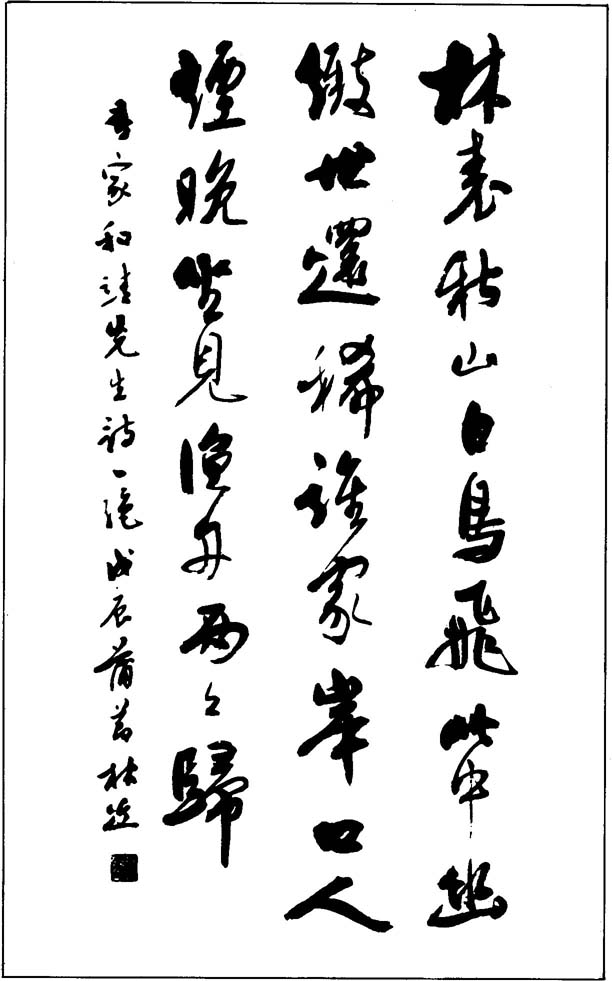 林表秋山白鳥飛此中幽
緻世還稀誰家岸口人
煙晚坐見漁舟兩々歸
吾家和靖先生詩一絕戊辰莆林